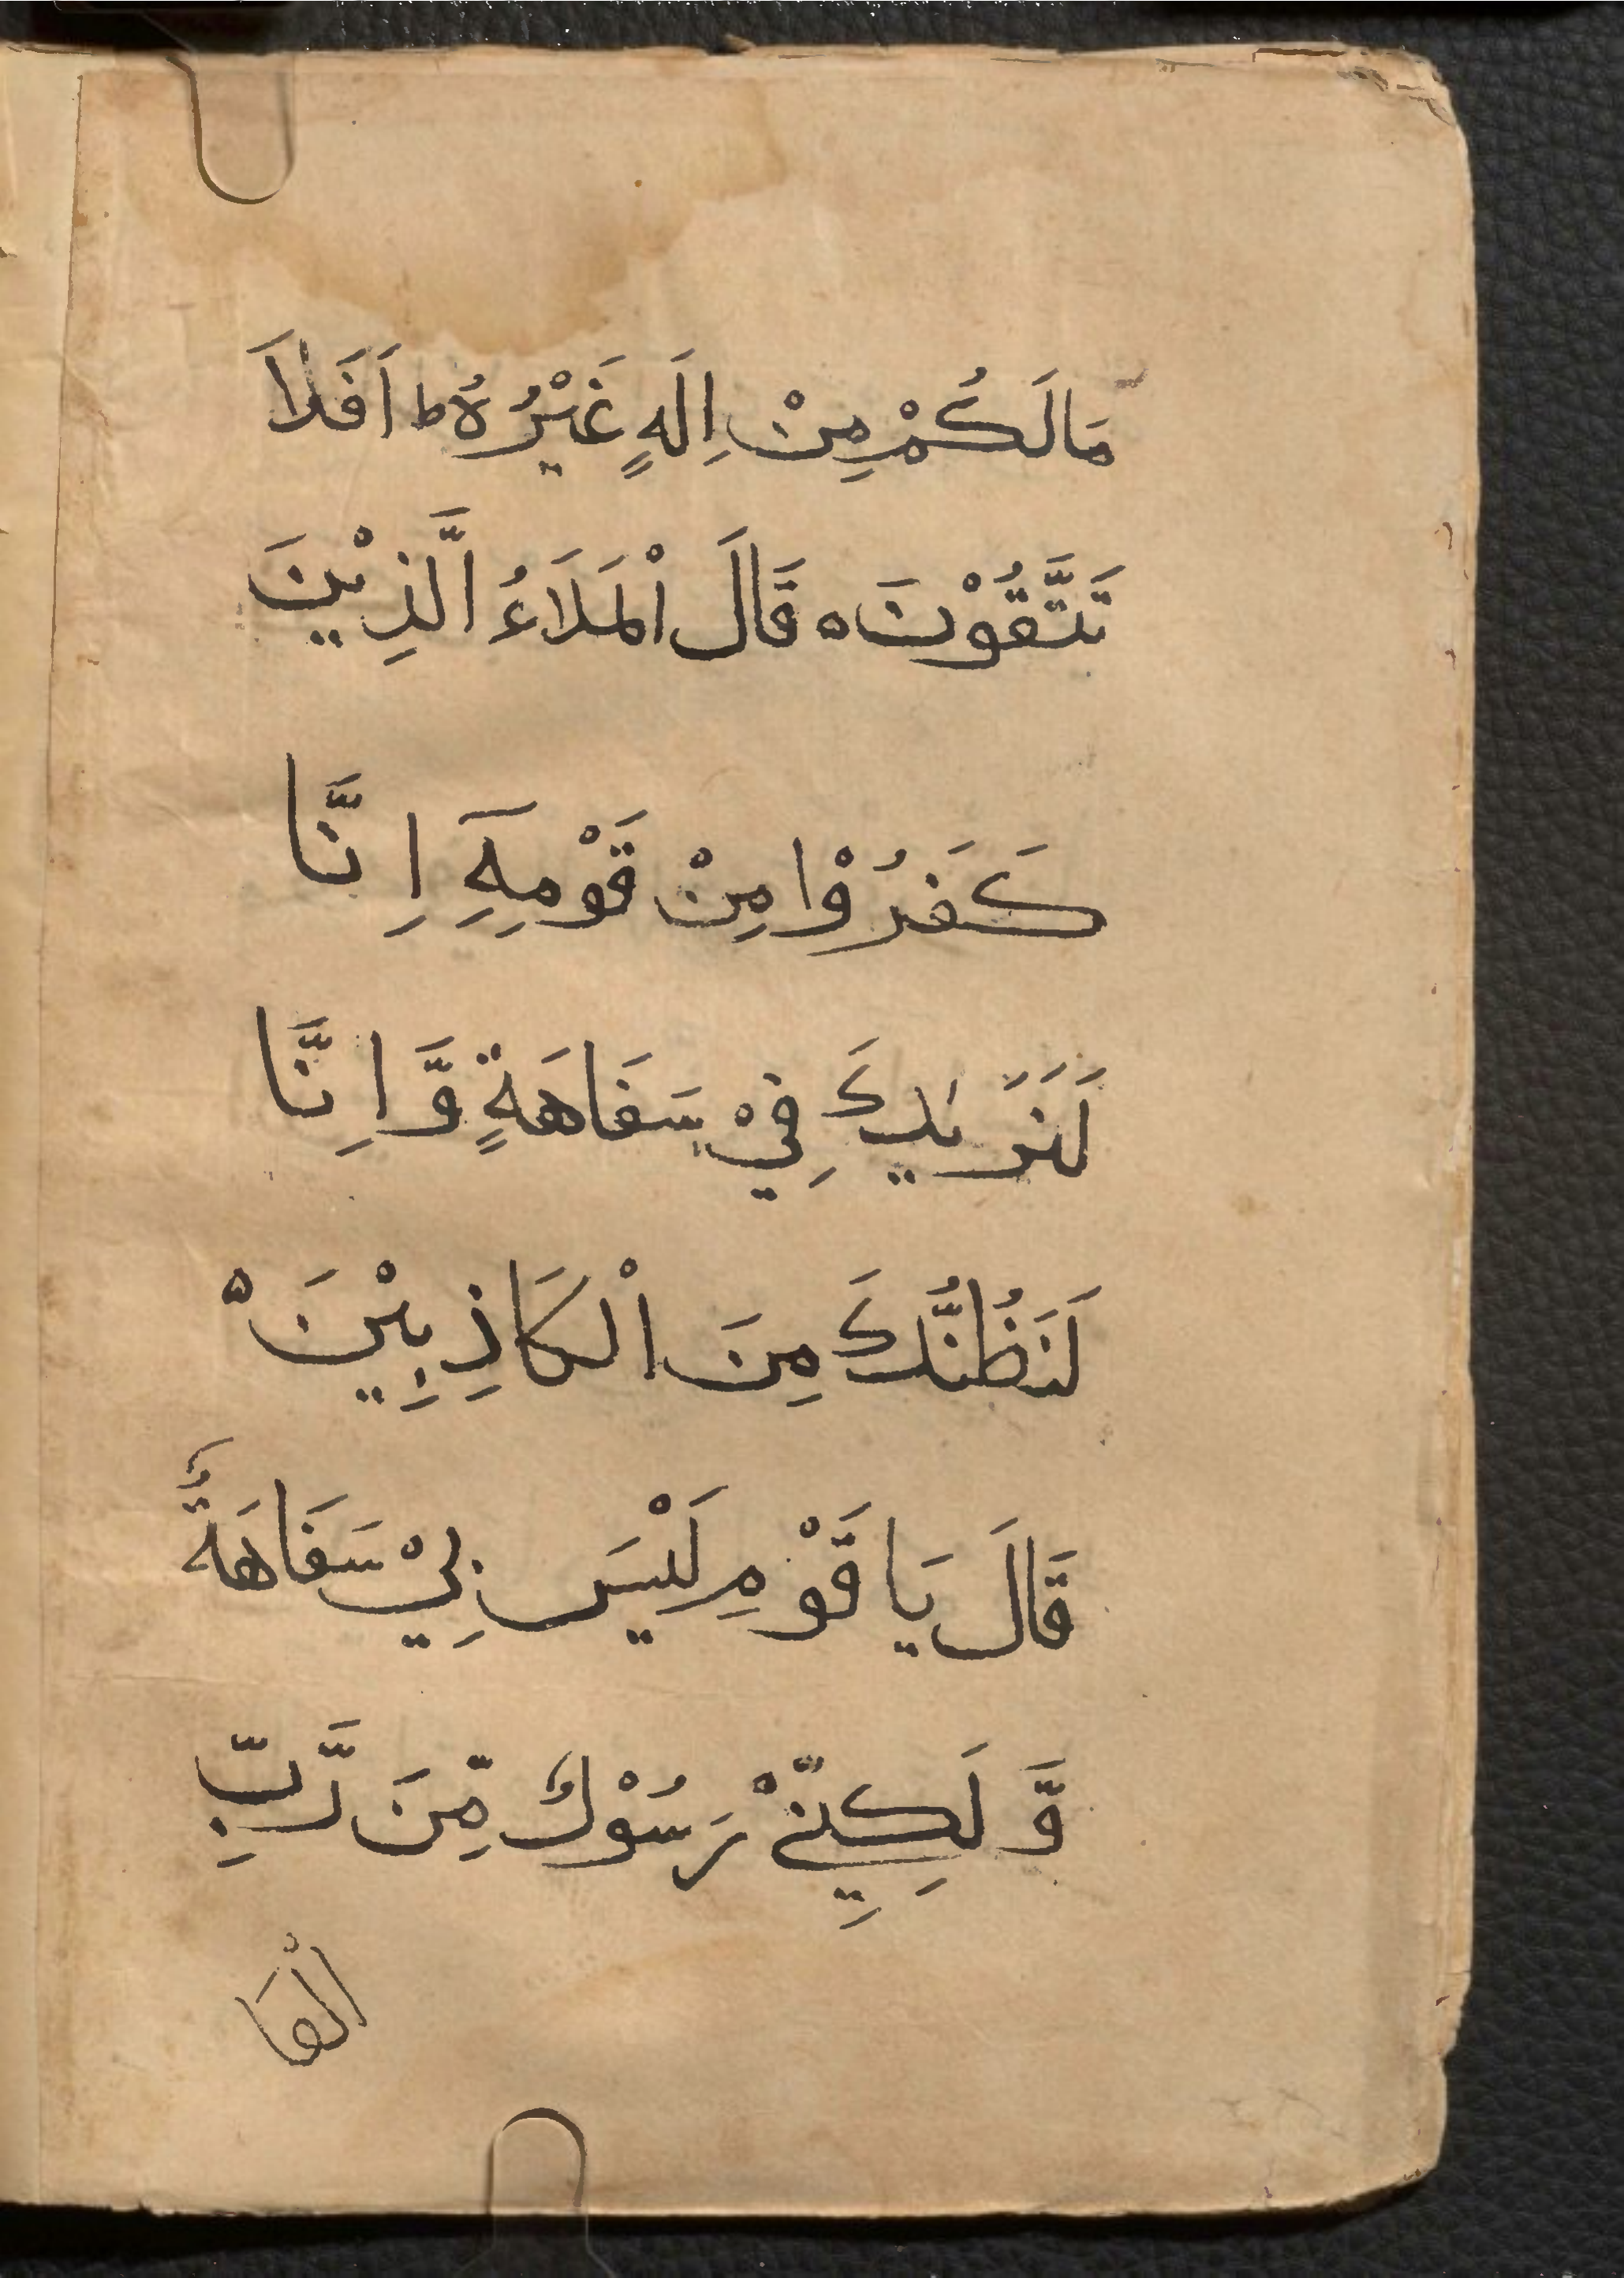 مَالَكُمْ مِنْ اِلَهٍ غَيْرُهُ ط اَفَلاَ
تَتَّقُوْنَ ه قَالَ اْلمَلَاَءُ الَّذِيْنَ
كَفَرُوْا مِنْ قَوْمِهِٓ اِنَّا
لَنَرَيٰكَ فِيْ سَفَاهَةٍ وَّاِنَّا
لَنَظُنُّكَ مِنَ اْلكَاذِبِيْنَ ه
قَالَ يَا قَوْمِ لَيْسَ بِيْ سَفَاهَةٌ
وَّ لَكِنِّيْ رَسُوْلٌ مِّنَ رَّبِّ
اْلعَا